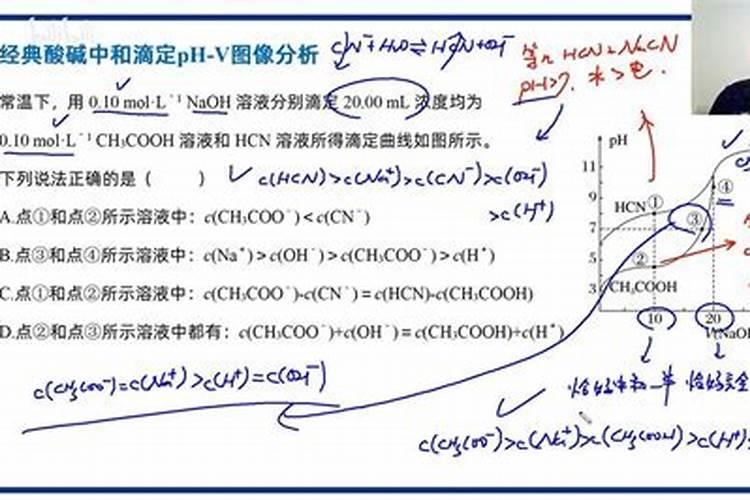 经典酸碱中和滴定pH-V图像分析
CN⁻+H₂O⇌HCN+OH⁻
等n HCN、NaCN
pH>7. 水>电.
常温下，用 0.10 mol·L⁻¹ NaOH 溶液分别滴定 20.00 mL 浓度均为
0.10 mol·L⁻¹ CH₃COOH 溶液和 HCN 溶液所得滴定曲线如图所示。
下列说法正确的是（　　）
c(HCN)>c(Na⁺)>c(CN⁻)>c(OH⁻)
>c(H⁺)
A.点①和点②所示溶液中：c(CH₃COO⁻)<c(CN⁻)
B.点③和点④所示溶液中：c(Na⁺)>c(OH⁻)>c(CH₃COO⁻)>c(H⁺)
C.点①和点②所示溶液中：c(CH₃COO⁻)-c(CN⁻)=c(HCN)-c(CH₃COOH)
D.点②和点③所示溶液中都有：c(CH₃COO⁻)+c(OH⁻)=c(CH₃COOH)+c(H⁺)
pH
11
9
7
5
3
HCN ①
②
③
④
CH₃COOH
10
20
V(NaOH
c(CH₃COO⁻)=c(Na⁺)>c(H⁺)=c(OH⁻)
恰好中和一半
恰好完全
c(CH₃COO⁻)>c(Na⁺)>c(CH₃COOH)>c(H⁺)>